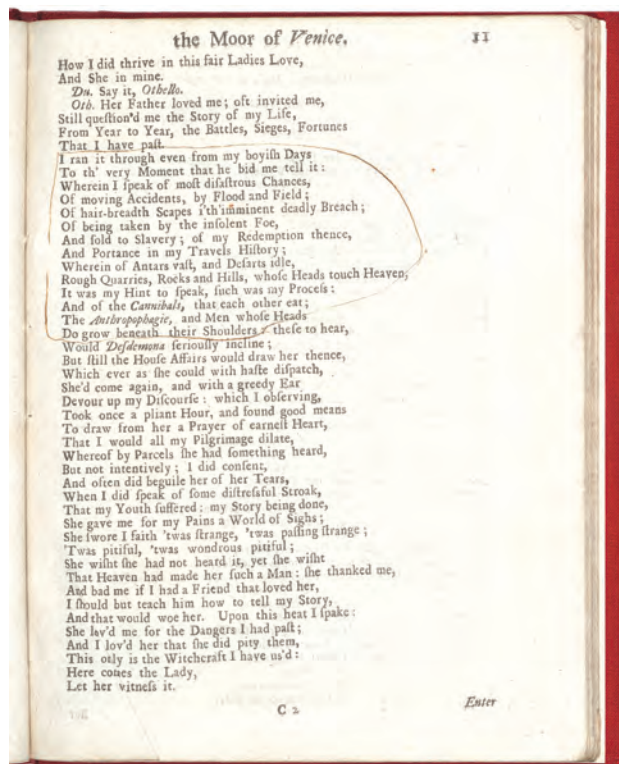 the Moor of Venice. 11
How I did thrive in this fair Ladies Love,
And She in mine.
Du. Say it, Othello.
Oth. Her Father loved me; oft invited me,
Still queſtion'd me the Story of my Life,
From Year to Year, the Battles, Sieges, Fortunes
That I have paſt.
I ran it through even from my boyiſh Days
To th' very Moment that he bid me tell it:
Wherein I ſpeak of moſt diſaſtrous Chances,
Of moving Accidents, by Flood and Field;
Of hair-breadth Scapes i'th'imminent deadly Breach;
Of being taken by the inſolent Foe,
And ſold to Slavery; of my Redemption thence,
And Portance in my Travels Hiſtory;
Wherein of Antars vaſt, and Deſarts idle,
Rough Quarries, Rocks and Hills, whoſe Heads touch Heaven,
It was my Hint to ſpeak, ſuch was my Proceſs:
And of the Cannibals, that each other eat;
The Anthropophagie, and Men whoſe Heads
Do grow beneath their Shoulders: theſe to hear,
Would Deſdemona ſeriouſly incline;
But ſtill the Houſe Affairs would draw her thence,
Which ever as ſhe could with haſte diſpatch,
She'd come again, and with a greedy Ear
Devour up my Diſcourſe: which I obſerving,
Took once a pliant Hour, and found good means
To draw from her a Prayer of earneſt Heart,
That I would all my Pilgrimage dilate,
Whereof by Parcels ſhe had ſomething heard,
But not intentively; I did conſent,
And often did beguile her of her Tears,
When I did ſpeak of ſome diſtreſsful Stroak,
That my Youth ſuffered: my Story being done,
She gave me for my Pains a World of Sighs;
She ſwore I faith 'twas ſtrange, 'twas paſſing ſtrange;
'Twas pitiful, 'twas wondrous pitiful;
She wiſht ſhe had not heard it, yet ſhe wiſht
That Heaven had made her ſuch a Man: ſhe thanked me,
And bad me if I had a Friend that loved her,
I ſhould but teach him how to tell my Story,
And that would woe her. Upon this heat I ſpake:
She lov'd me for the Dangers I had paſt;
And I lov'd her that ſhe did pity them,
This only is the Witchcraft I have us'd:
Here comes the Lady,
Let her vitneſs it.
C 2 Enter